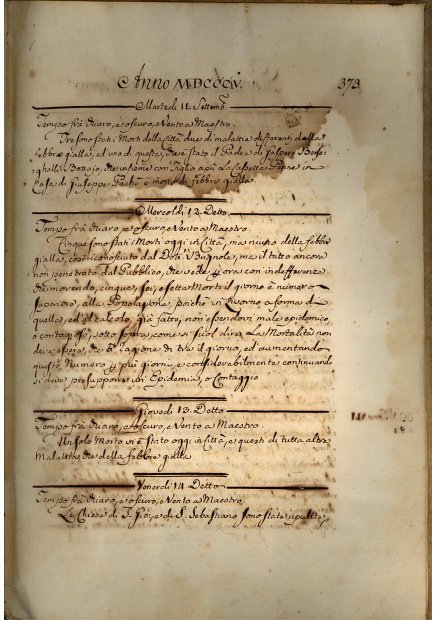 Anno MDCCCV. 373
Martedì 11. Settemb.
Tempo frà chiaro, e oscuro, e Vento a Maestro.
Tre sono stati i Morti della Città due di malattie differenti dalla
febbre gialla, ed uno di questa, che è stato il Padre di Gaspero
Bottajo, che insieme con Figlio aprì La Casa
Casa di Giuseppe è morto di febbre gialla
Mercoldì 12. Detto
Tempo frà chiaro, e oscuro, e Vento a Maestro.
Cinque sono stati i Morti oggi in Città, ma niuno della febbre
gialla, così riconosciuto dal Dott. Bongnole, ma il tutto ancora
non penetrato dal Pubblico, che vede p ora con indifferenza
che morendo, cinque, sei, e sette Morti il giorno è numero
superiore, alla Popolazione, poichè in Livorno a forma di
quella, ed al calcolo già fatto, non essendovi male epidemico,
o contagioso, sotto sopra, come si suol dire, La Mortalità non
deve essere, che à ragione di tre il giorno, ed aumentando
questo Numero p più giorni, e considerabilmente continuando
si deve presupporre un Epidemia, o Contaggio
Giovedì 13. Detto
Tempo frà chiaro, e oscuro, e Vento a Maestro.
Un solo Morto vi è stato oggi in Città, e questi di tutta altra
Malattia, che della febbre gialla
Venerdì 14. Detto
Tempo frà chiaro, e oscuro, e Vento a Maestro.
Le Chiese di S. e di S. Sebastiano sono state ripulite,